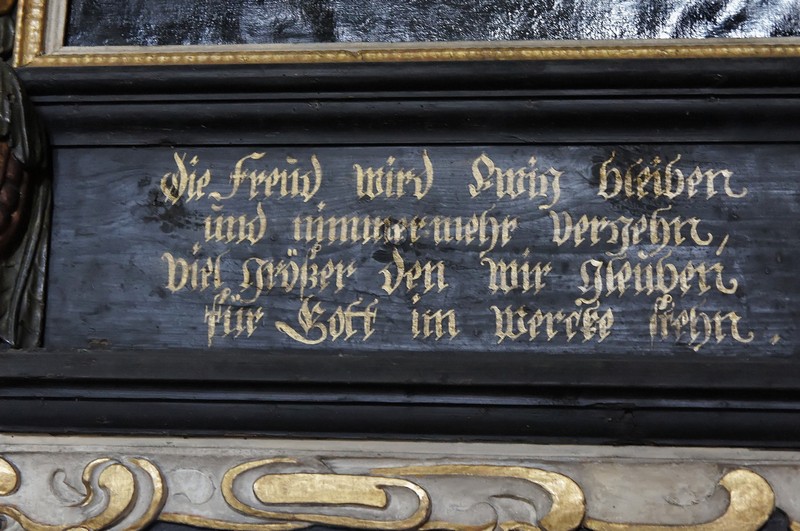 die Freud wird Ewig bleiben
und nimmermehr vergehn,
viel größer den wir gleuben
für Gott im wercke stehn.